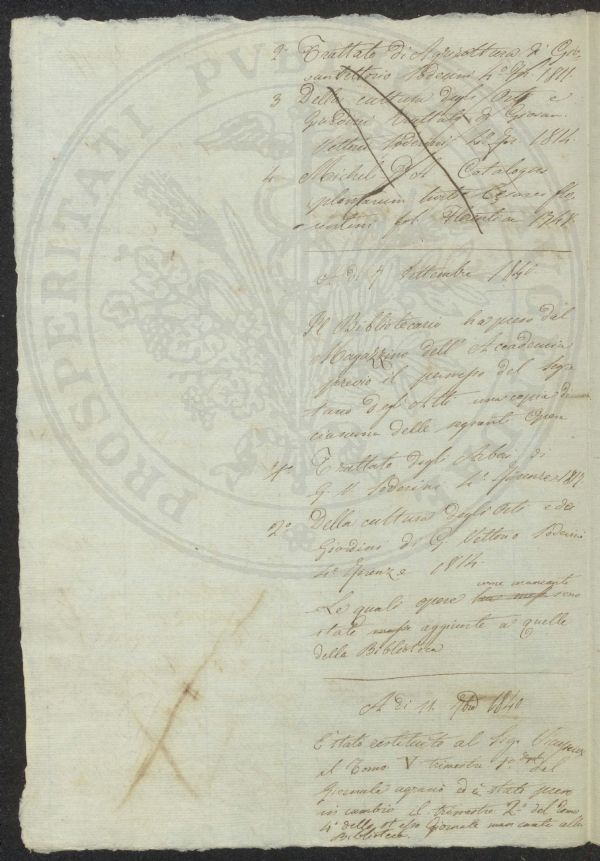 2° Trattato di Agricoltura di Gio-
vanvettorio Soderini 4° Fir. 1811.
3 Della cultura degli Orti e
Giardini trattato di Giovan
Vettorio Soderini 4° Fir. 1814.
4 Michel Ang. Catalogus
plantarum horti Cesarei Flo-
rentini fol. Florentiae 1748.
A dì 7 Settembre 1840
Il Bibliotecario ha preso dal
Magazzino dell'Accademia
previo il permesso del Segre
tario degli Atti una copia di
ciascuna delle seguenti Opere
1° Trattato degli Arbori di
G. V. Soderini 4° Firenze 1817
2° Della cultura degli Orti e dei
Giardini di G Vettorio Soderini
4° Firenze 1814.
Le quali opere come mancanti sono
state aggiunte a quelle
della Biblioteca
A dì 11 9bre 1840
È stato restituito al Sig.
il Tomo V trimestre 1° del
Giornale agrario ed è stato preso
in cambio il trimestre 2° del Tomo
4° dello stesso Giornale mancante alla
Biblioteca.
PROSPERITATI PUBL